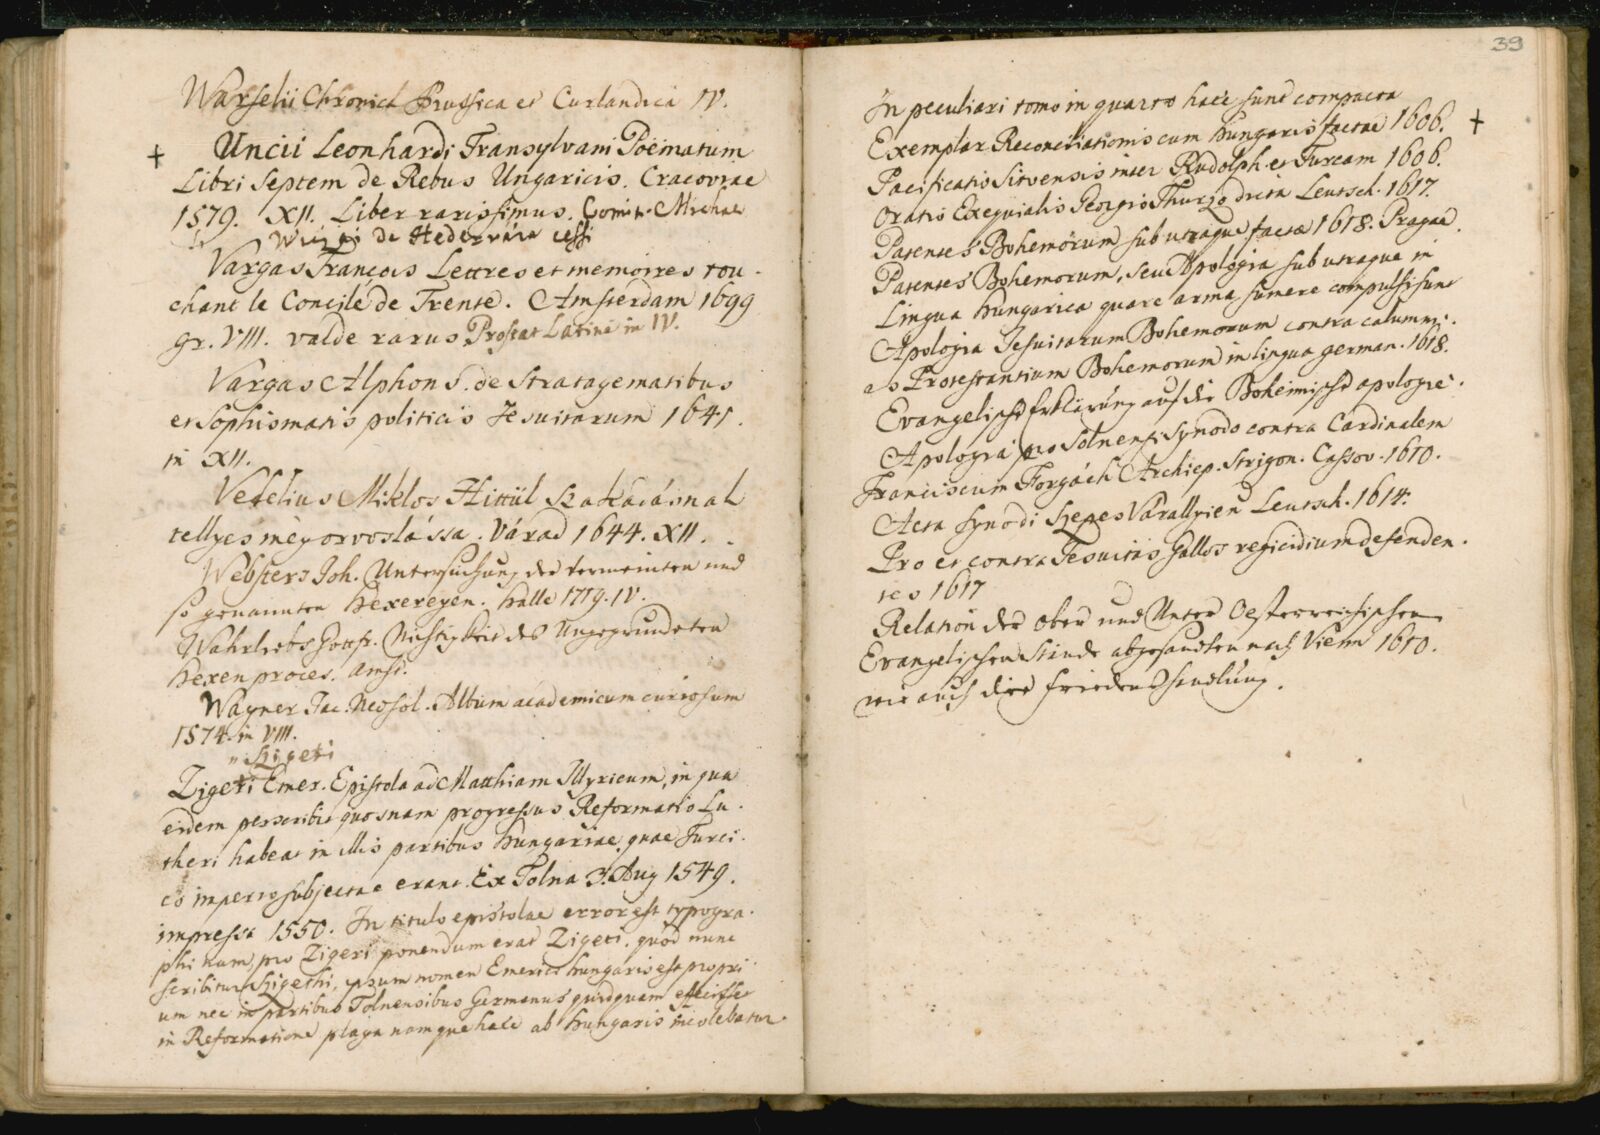 Warselii Chronica Prussica et Curlandica IV.
† Uncii Leonhardi Transylvani Poëmatum
Libri septem de Rebus Ungaricis. Cracoviae
1579. XII. Liber rarissimus. Comit. Michae
de Hedervára cessi
Vargas François Lettres et memoires tou-
chant le Concile de Trente. Amsterdam 1699
gr. VIII. valde rarus Prostat Latine in IV.
Vargas Alphons. de Stratagematibus
et Sophismatis politicis Jesuitarum 1641.
in XII.
Vetelius Miklos Hittül Szakácásnak
tellyes megorvoslássa. Várad 1644. XII.
Websters Joh. Untersuchung der vermeinten und
so genannten Hexereyen. Halle 1719. IV.
Wahrliebs Gottfr. Nichtigkeit des Ungegründeten
Hexenproces. Amst.
Wagner Jac. Neosol. Album academicum curiosum
1574. in VIII.
" Szigeti
Zigeti Emer. Epistola ad Matthiam Illyricum, in qua
eidem perscribit quosnam progressus Reformatio Lu-
theri habeat in illis partibus Hungariae quae Turci-
co imperio subjectae erant. Ex Tolna 3. Aug 1549.
impressa 1550. In titulo epistolae error est typogra-
phi nam pro Zigeri ponendum erat Zigeti, quod nunc
scribitur Szigethi, ipsum nomen Emerici Hungaris est propri-
um nec in partibus Tolnensibus Germanus quidquam effecisset
in Reformatione plaga namque haec ab Hungaris incolebatur.
39
In peculiari tomo in quarto haec sunt compacta
Exemplar Reconciliationis cum Hungaris factae 1606. †
Pacificatio Sitvensis inter Rudolph. et Turcam 1606.
Oratio Exequialis Georgio Thurzo dicta Leutsch. 1617.
Patentes Bohemorum sub utraque factae 1618. Pragae.
Patentes Bohemorum, seu Apologia sub utraque in
Lingua Hungarica quare arma sumere compulsi sunt
Apologia Jesuitarum Bohemorum contra calumni-
as Protestantium Bohemorum in lingua german. 1618.
Evangelische Erklärung auf die Böheimische apologie.
Apologia pro Solnensi Synodo contra Cardinalem
Franciscum Forgách Archiep. Strigon. Cassov. 1610.
Acta Synodi Szepes Varallyien Leutsch. 1614.
Pro et contra Jesuitas Gallos regicidium defenden-
tes 1617
Relation der ober und Unter Oesterreichischen
Evangelischen Stände abgesandten nach Vienn 1610.
wie auch die friedenshandlung.